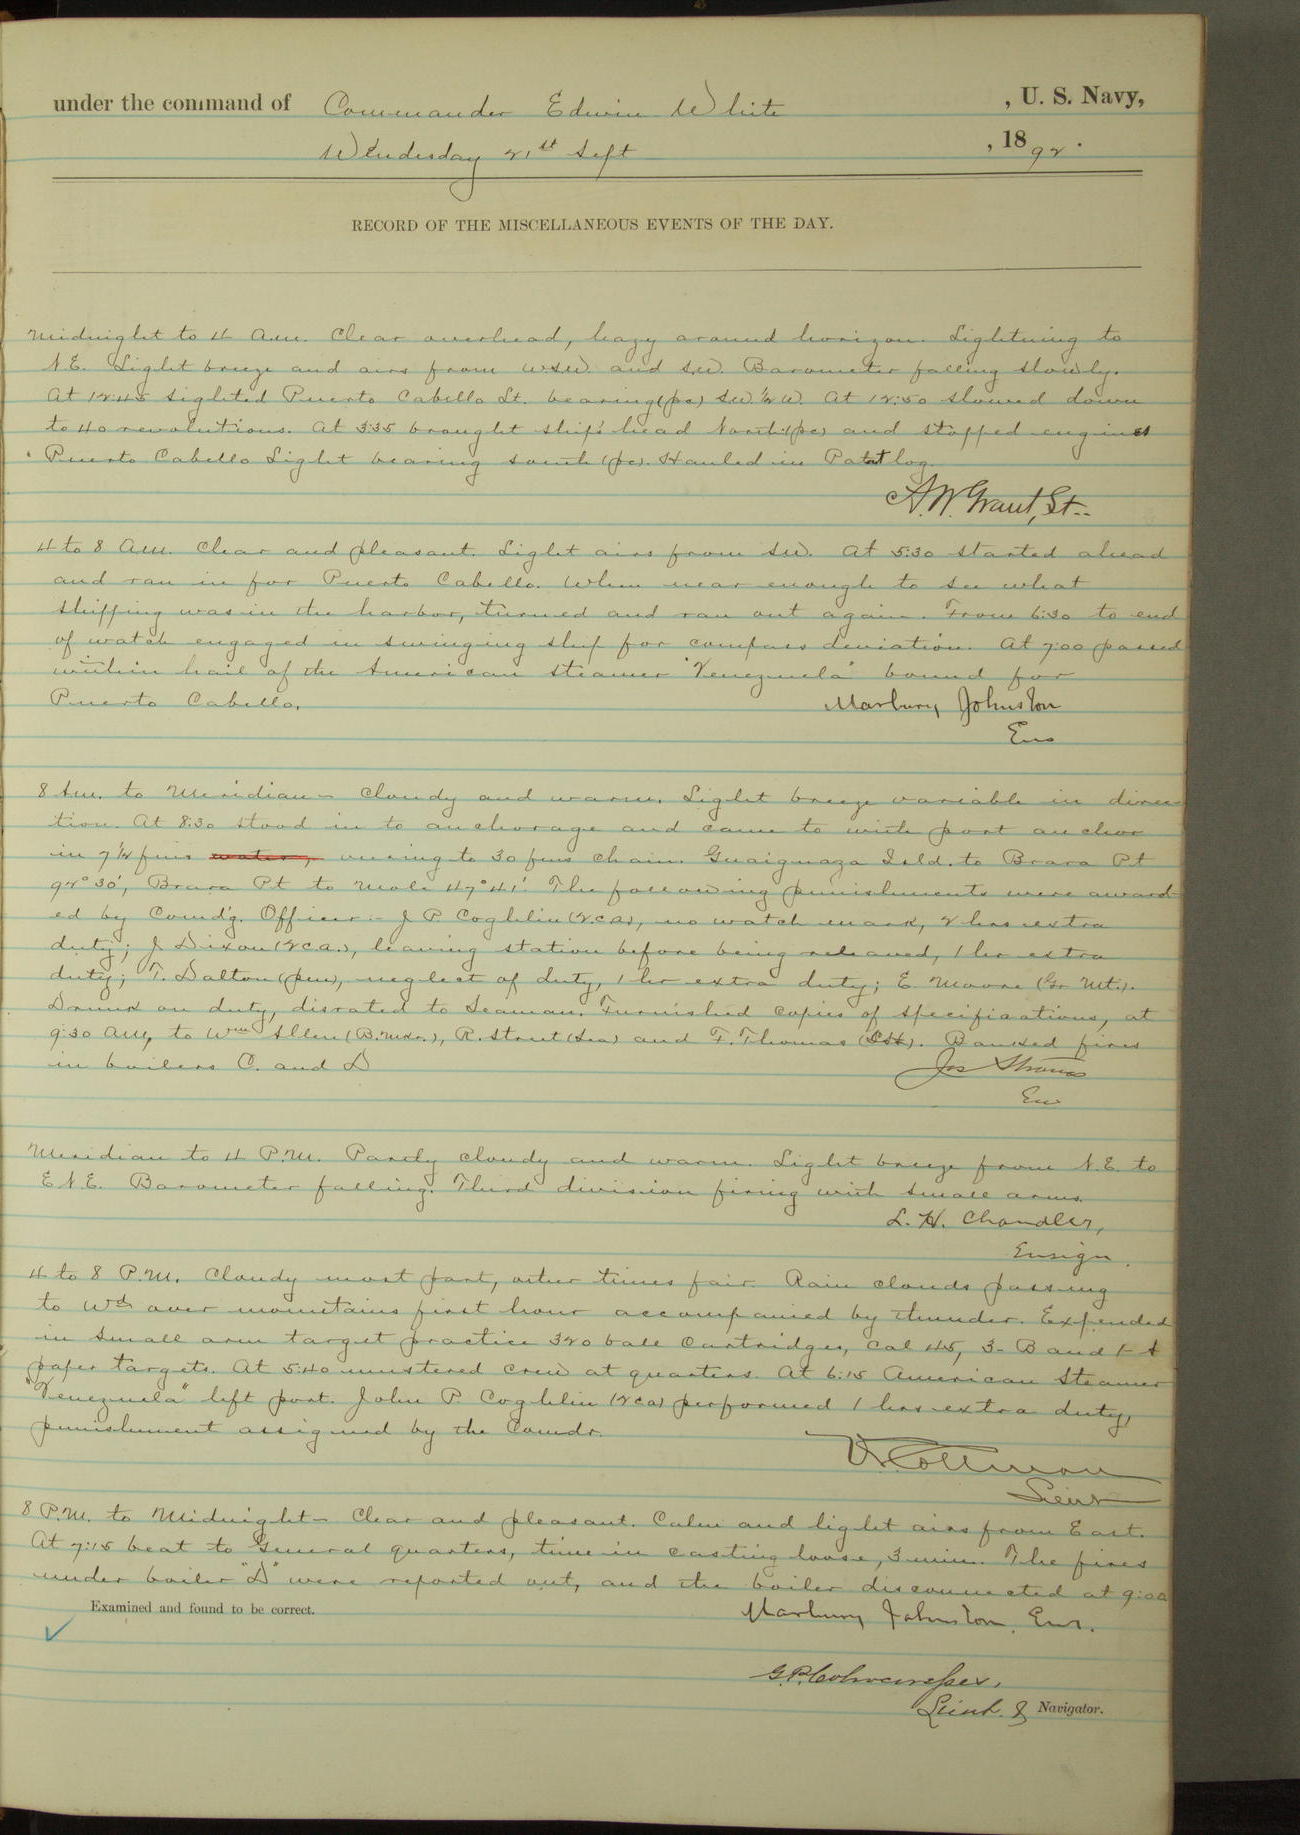 under the command of Commander Edwin White, U. S. Navy,
Wendesday 21st Sept, 1892.
RECORD OF THE MISCELLANEOUS EVENTS OF THE DAY.
Midnight to 4 A.m. Clear overhead, hazy around horizon. Lightning to
N.E. Light breeze and airs from W.S.W. and S.W. Barometer falling slowly.
At 12:45 sighted Puerto Cabello Lt. bearing (pc) S.W. ½ W. At 12:50 slowed down
to 40 revolutions. At 3:35 brought ship's head North (pc) and stopped engines
Puerto Cabello Light bearing south (pc). Hauled in Patent log.
A. W. Grant, Lt.
4 to 8 A.m. Clear and pleasant. Light airs from S.W. At 5:30 started ahead
and ran in for Puerto Cabello. When near enough to see what
shipping was in the harbor, turned and ran out again. From 6:30 to end
of watch engaged in swinging ship for compass deviation. At 7:00 passed
within hail of the American steamer "Venezuela" bound for
Puerto Cabello.
Marbury Johnston
Ens
8 A.m. to Meridian - Cloudy and warm. Light breeze variable in direc-
tion. At 8:30 stood in to anchorage and came to with port anchor
in 7¼ fms water, veering to 30 fms chain. Guaiguaza Isld. to Brara Pt
92° 30', Brara Pt to Mole 47° 41'. The following punishments were award-
ed by Comd'g. Officer:- J. P. Coghlin (2.ca), no watch mark, 2 hrs extra
duty; J. Dixon (2 ca.), leaving station before being relieved, 1 hr extra
duty; T. Dalton (), neglect of duty, 1 hr extra duty; E. Moore (Gr Mt.).
Drunk on duty, disrated to Seaman. Furnished copies of specifications, at
9:30 A.m, to Wm Allen (), R. Street (Sea) and F. Thomas (). Banked fires
in boilers C. and D
Jos Strauss
Ens
Meridian to 4 P.M. Partly cloudy and warm. Light breeze from N.E. to
E.N.E. Barometer falling. Third division firing with small arms.
L. H. Chandler,
Ensign.
4 to 8 P.M. Cloudy most part, other times fair. Rain clouds passing
to Wd over mountains first hour accompanied by thunder. Expended
in small arm target practice 320 ball cartridges, Cal 45, 3-B and 1-A
paper targets. At 5:40 mustered crew at quarters. At 6:15 American Steamer
"Venezuela" left port. John P. Coghlin (2ca) performed 1 hrs extra duty,
punishment assigned by the Comdr.
V. Cottman
Lieut
8 P.M. to Midnight - Clear and pleasant. Calm and light airs from East.
At 7:15 beat to General quarters, time in casting loose, 3 min. The fires
under boiler "D" were reported out, and the boiler disconnected at 9:00
Marbury Johnston, Ens.
Examined and found to be correct.
G. P. Colvocoresses,
Lieut. & Navigator.